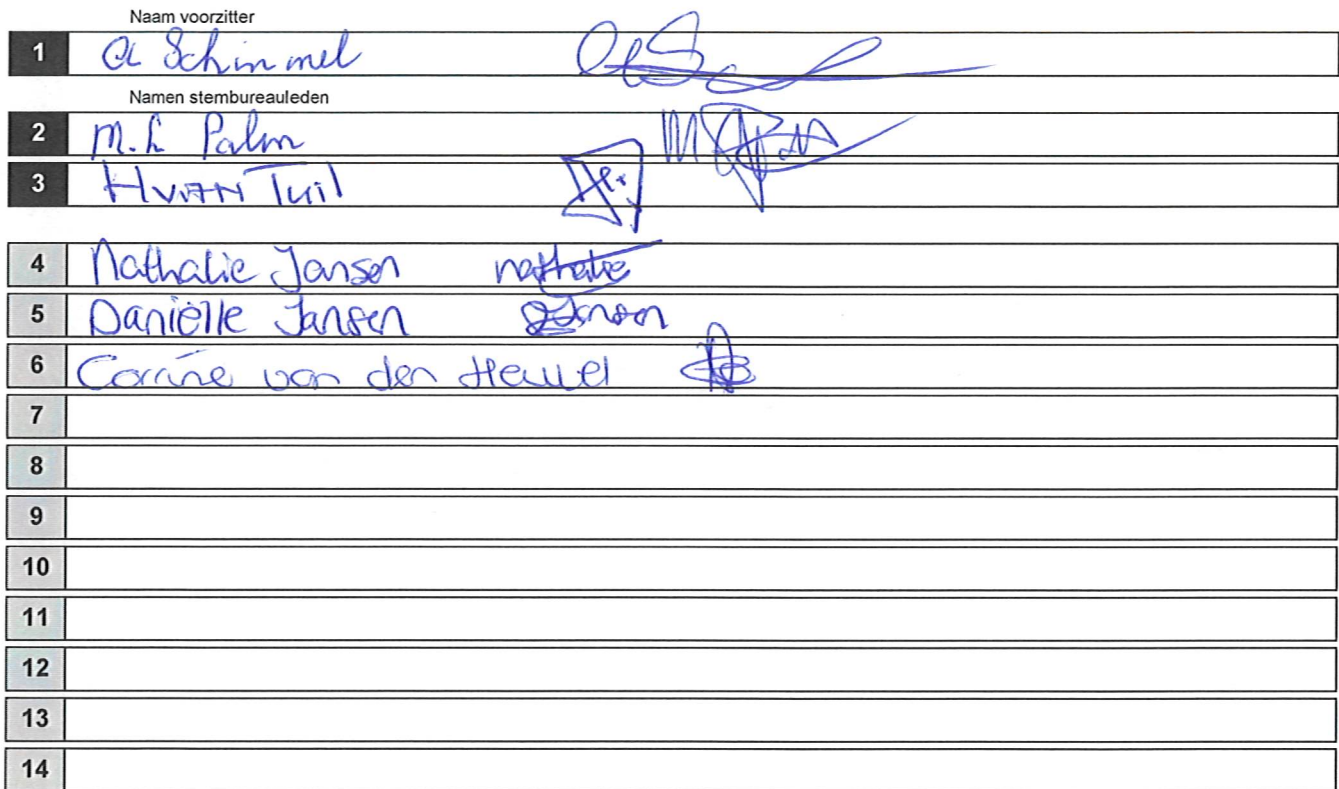 Naam voorzitter
1 Schimmel
Namen stembureauleden
2 M.L Palm
3 H van Tuil
4 Nathalie Jansen nathalie
5 Daniëlle Jansen DJansen
6 Corrine van den Heuvel
7
8
9
10
11
12
13
14